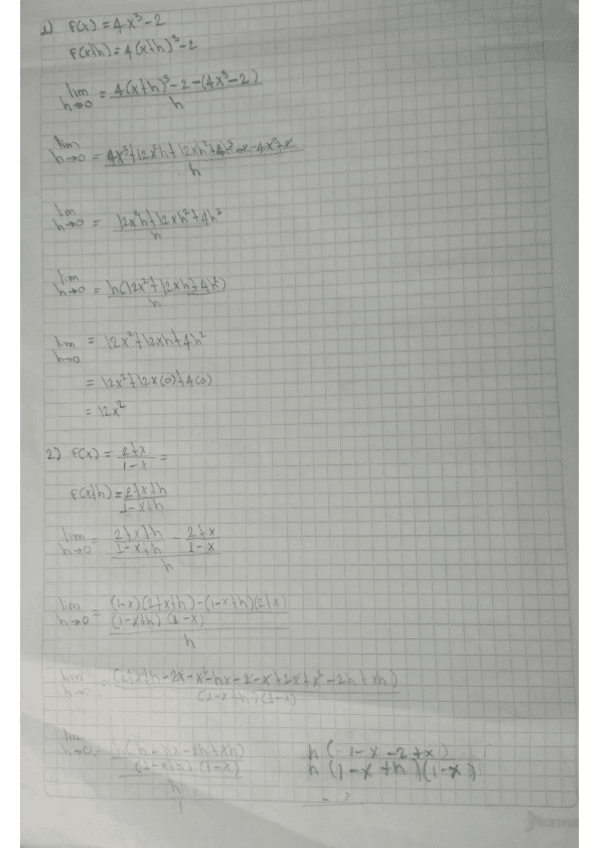 1) f(x) = 4x³-2
f(x+h) = 4(x+h)³-2
lim h→0 = 4(x+h)³-2-(4x³-2) / h
lim h→0 = 4x³+12x²h+12xh²+4h³-2-4x³+2 / h
lim h→0 = 12x²h+12xh²+4h³ / h
lim h→0 = h(12x²+12xh+4h²) / h
lim h→0 = 12x²+12xh+4h²
= 12x²+12x(0)+4(0)
= 12x²
2) f(x) = 2+x / 1-x =
f(x+h) = 2+x+h / 1-x+h
lim h→0 = 2+x+h / 1-x+h - 2+x / 1-x / h
lim h→0 = (1-x)(2+x+h)-(1-x+h)(2+x) / (1-x+h)(1-x) / h
lim h→0 = / (1-x+h)(1-x)
lim h→0 = h(h-hx-2h+xh) / (1-x+h)(1-x) / h
h(-1-x-2+x) / h(1-x+h)(1-x)
Norma